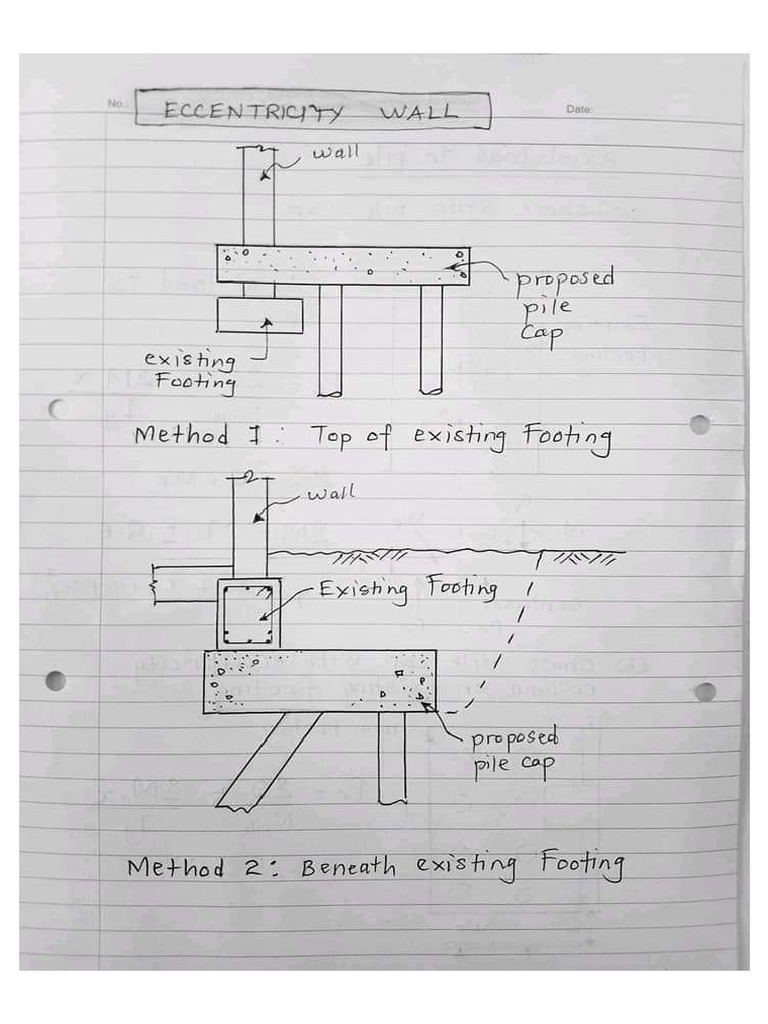 No.
Date:
ECCENTRICITY WALL
wall
proposed
pile
cap
existing
Footing
Method 1: Top of existing Footing
wall
Existing Footing
proposed
pile cap
Method 2: Beneath existing Footing